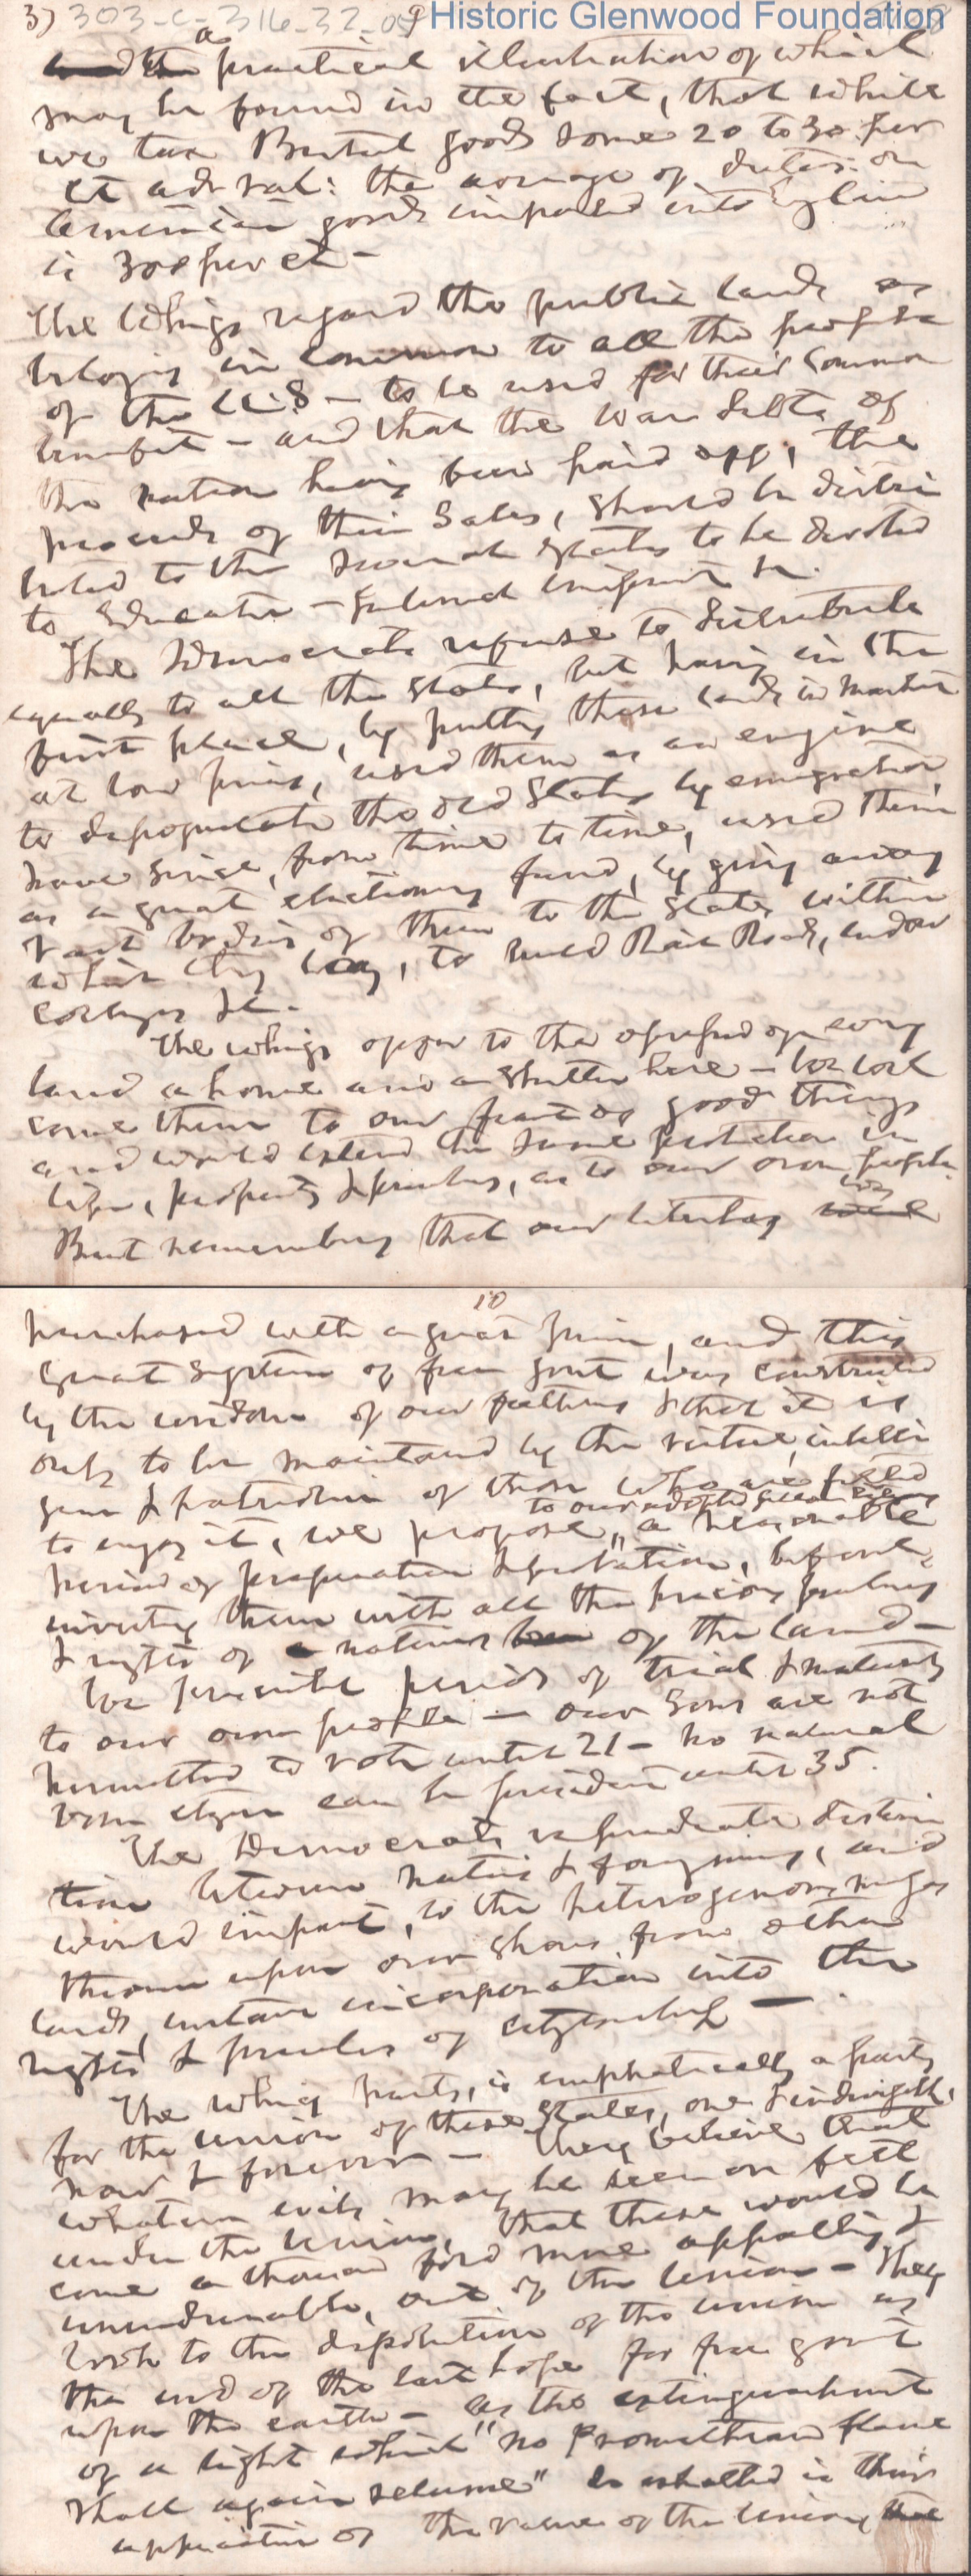 3) 303-C-316-32-09 9 Historic Glenwood Foundation
a
practical illustration of which
may be found in the fact, that while
we tax British goods some 20 to 30 per
ct ad val: the average of duties on
American goods imported into England
is 300 per ct -
The Whigs regard the public lands as
belonging in common to all the people
of the U.S - to be used for their common
benefit - and that the war debts of
the nation having been paid off, the
proceeds of their sales, should be distri
buted to the several States to be devoted
to Education - Internal improvmt &c.
The Democrats refuse to distribute
equally to all the States, but having in the
first place, by putting these lands in market
at low prices, used them as an engine
to depopulate the old States by emigration
have since, from time to time, used them
as a great electioneering fund, by giving away
vast bodies of them to the States within
which they lay, to build Rail Roads, endow
colleges &c -
The whigs offer to the oppressed of every
land a home and a shelter here - We wel
come them to our feast of good things
and would extend the same protection in
life, property & privileges, as to our own people.
was
But remembering that our liberty
10
purchased with a great price, and this
great system of free govt was constructed
by the wisdom of our fathers & that it is
only to be maintained by the virtue, intelli
gence & patriotism of those who are fitted
to our adopted
to enjoy it, we propose, "a reasonable
period of preparation & probation, before
investing them with all the precious privileges
& rights of natives of the land -
We prescribe periods of trial & maturity
to our own people - our sons are not
permitted to vote until 21 - no natural
born citizen can be president until 35.
The Democrats repudiate distinc
tion between natives & foreigners, and
would impart, to the heterogenous masses
thrown upon our shores from other
lands, instant incorporation into the
rights & privileges of citizenship -
The whig party, is emphatically a party
for the union of these States, one & indivisible,
now & forever - They believe that
whatever evils may be seen or felt
under the Union, that these would be
come a thousand fold more appalling &
unendurable, out of the Union - They
look to the dissolution of the union as
the end of the last hope for free govt
upon the earth - as the extinguishment
of a light which "no Promethean flame
shall again relume" So exalted is their
appreciation of the value of the Union, that